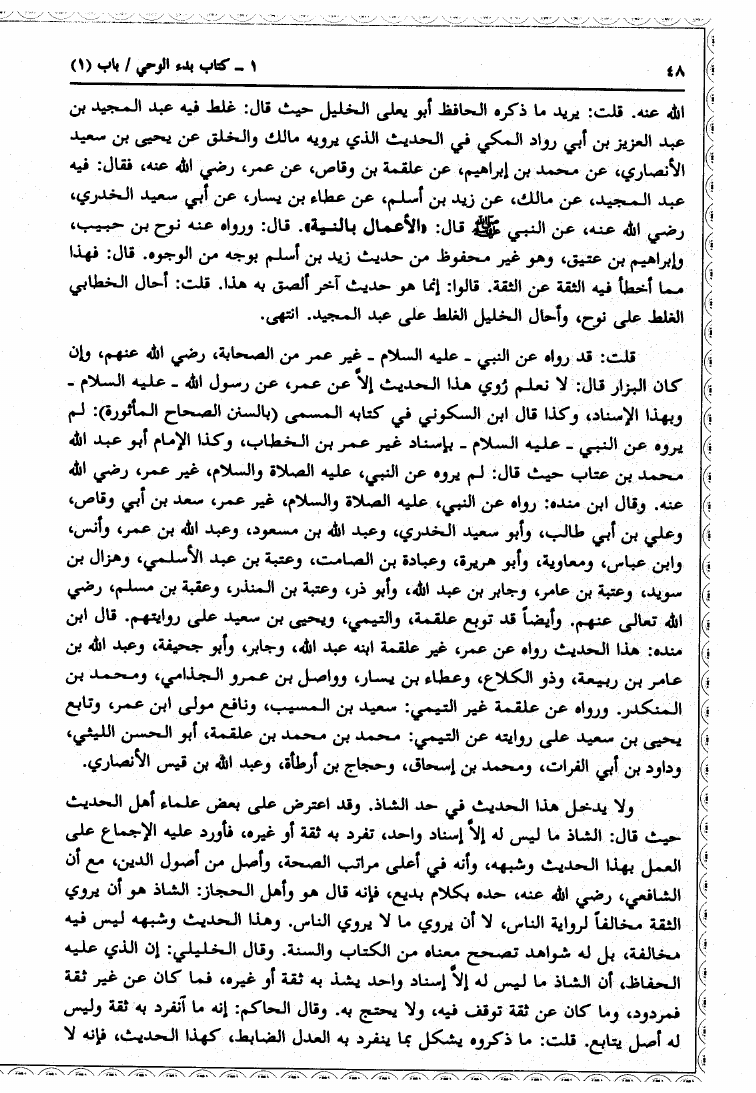 ٤٨
١ ـ كتاب بدء الوحي / باب (١)
الله عنه. قلت: يريد ما ذكره الحافظ أبو يعلى الخليل حيث قال: غلط فيه عبد المجيد بن
عبد العزيز بن أبي رواد المكي في الحديث الذي يرويه مالك والخلق عن يحيى بن سعيد
الأنصاري، عن محمد بن إبراهيم، عن علقمة بن وقاص، عن عمر، رضي الله عنه، فقال: فيه
عبد المجيد، عن مالك، عن زيد بن أسلم، عن عطاء بن يسار، عن أبي سعيد الخدري،
رضي الله عنه، عن النبي ﷺ قال: «الأعمال بالنية». قال: ورواه عنه نوح بن حبيب،
وإبراهيم بن عتيق، وهو غير محفوظ من حديث زيد بن أسلم بوجه من الوجوه. قال: فهذا
مما أخطأ فيه الثقة عن الثقة. قالوا: إنما هو حديث آخر ألصق به هذا. قلت: أحال الخطابي
الغلط على نوح، وأحال الخليل الغلط على عبد المجيد. انتهى.
قلت: قد رواه عن النبي ـ عليه السلام ـ غير عمر من الصحابة، رضي الله عنهم، وإن
كان البزار قال: لا نعلم رُوي هذا الحديث إلاَّ عن عمر، عن رسول الله ـ عليه السلام ـ
وبهذا الإسناد، وكذا قال ابن السكوني في كتابه المسمى (بالسنن الصحاح المأثورة): لم
يروه عن النبي ـ عليه السلام ـ بإسناد غير عمر بن الخطاب، وكذا الإمام أبو عبد الله
محمد بن عتاب حيث قال: لم يروه عن النبي، عليه الصلاة والسلام، غير عمر، رضي الله
عنه. وقال ابن منده: رواه عن النبي، عليه الصلاة والسلام، غير عمر، سعد بن أبي وقاص،
وعلي بن أبي طالب، وأبو سعيد الخدري، وعبد الله بن مسعود، وعبد الله بن عمر، وأنس،
وابن عباس، ومعاوية، وأبو هريرة، وعبادة بن الصامت، وعتبة بن عبد الأسلمي، وهزال بن
سويد، وعتبة بن عامر، وجابر بن عبد الله، وأبو ذر، وعتبة بن المنذر، وعقبة بن مسلم، رضي
الله تعالى عنهم. وأيضاً قد توبع علقمة، والتيمي، ويحيى بن سعيد على روايتهم. قال ابن
منده: هذا الحديث رواه عن عمر، غير علقمة ابنه عبد الله، وجابر، وأبو جحيفة، وعبد الله بن
عامر بن ربيعة، وذو الكلاع، وعطاء بن يسار، وواصل بن عمرو الجذامي، ومحمد بن
المنكدر. ورواه عن علقمة غير التيمي: سعيد بن المسيب، ونافع مولى ابن عمر، وتابع
يحيى بن سعيد على روايته عن التيمي: محمد بن محمد بن علقمة، أبو الحسن الليثي،
وداود بن أبي الفرات، ومحمد بن إسحاق، وحجاج بن أرطأة، وعبد الله بن قيس الأنصاري.
ولا يدخل هذا الحديث في حد الشاذ. وقد اعترض على بعض علماء أهل الحديث
حيث قال: الشاذ ما ليس له إلاَّ إسناد واحد، تفرد به ثقة أو غيره، فأورد عليه الإجماع على
العمل بهذا الحديث وشبهه، وأنه في أعلى مراتب الصحة، وأصل من أصول الدين، مع أن
الشافعي، رضي الله عنه، حده بكلام بديع، فإنه قال هو وأهل الحجاز: الشاذ هو أن يروي
الثقة مخالفاً لرواية الناس، لا أن يروي ما لا يروي الناس. وهذا الحديث وشبهه ليس فيه
مخالفة، بل له شواهد تصحح معناه من الكتاب والسنة. وقال الخليلي: إن الذي عليه
الحفاظ، أن الشاذ ما ليس له إلاَّ إسناد واحد يشذ به ثقة أو غيره، فما كان عن غير ثقة
فمردود، وما كان عن ثقة توقف فيه، ولا يحتج به. وقال الحاكم: إنه ما أنفرد به ثقة وليس
له أصل يتابع. قلت: ما ذكروه يشكل بما ينفرد به العدل الضابط، كهذا الحديث، فإنه لا